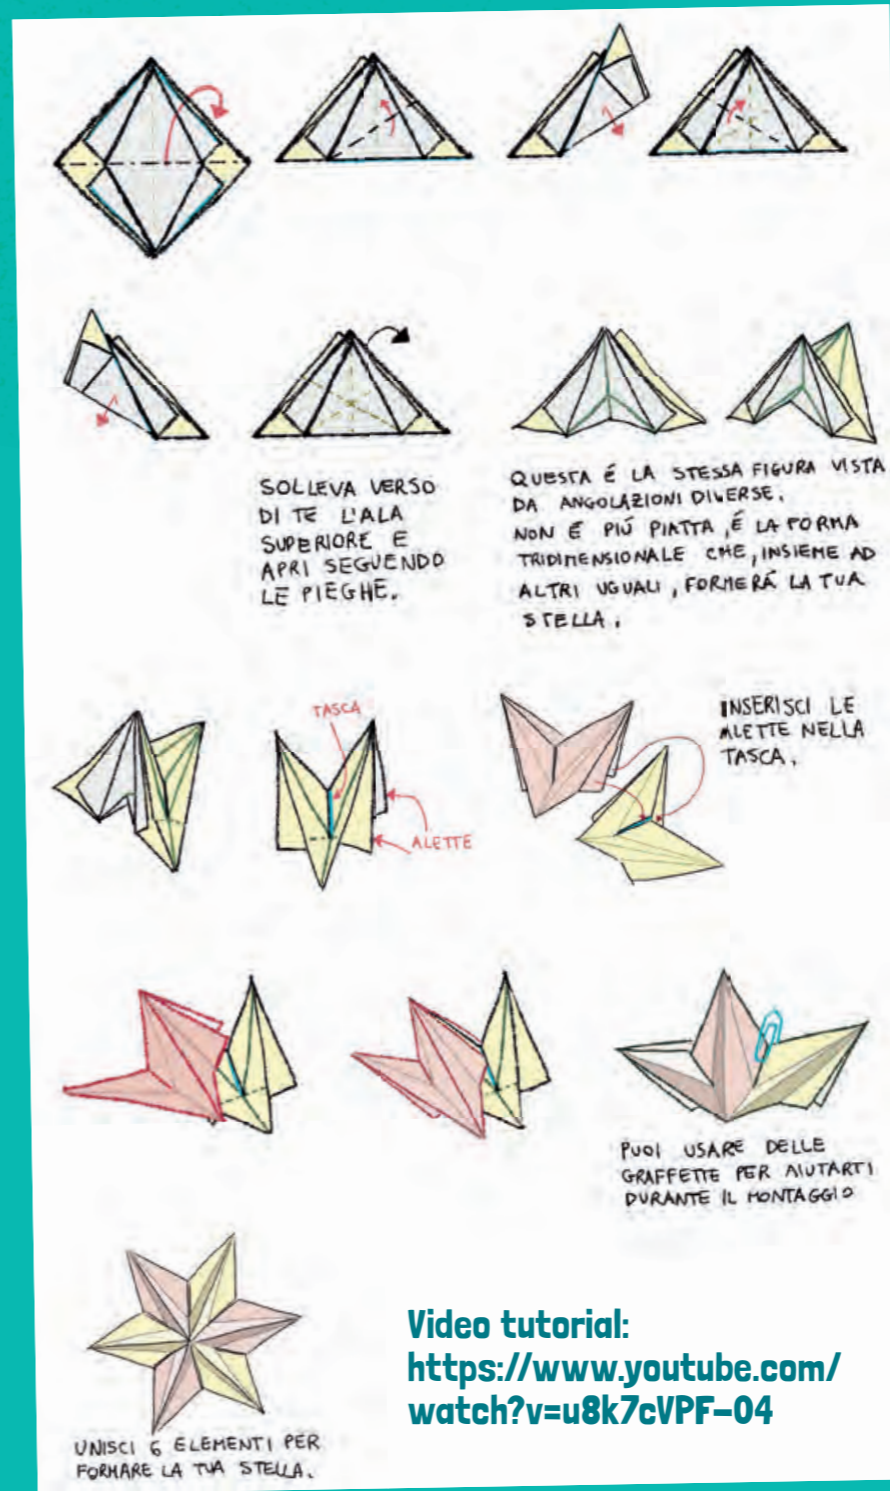 SOLLEVA VERSO
DI TE L'ALA
SUPERIORE E
APRI SEGUENDO
LE PIEGHE.
QUESTA É LA STESSA FIGURA VISTA
DA ANGOLAZIONI DIVERSE.
NON É PIÚ PIATTA, É LA FORMA
TRIDIMENSIONALE CHE, INSIEME AD
ALTRI UGUALI, FORMERÁ LA TUA
STELLA.
TASCA
ALETTE
INSERISCI LE
ALETTE NELLA
TASCA.
PUOI USARE DELLE
GRAFFETTE PER AIUTARTI
DURANTE IL MONTAGGIO
UNISCI 6 ELEMENTI PER
FORMARE LA TUA STELLA.
Video tutorial:
https://www.youtube.com/
watch?v=u8k7cVPF-04